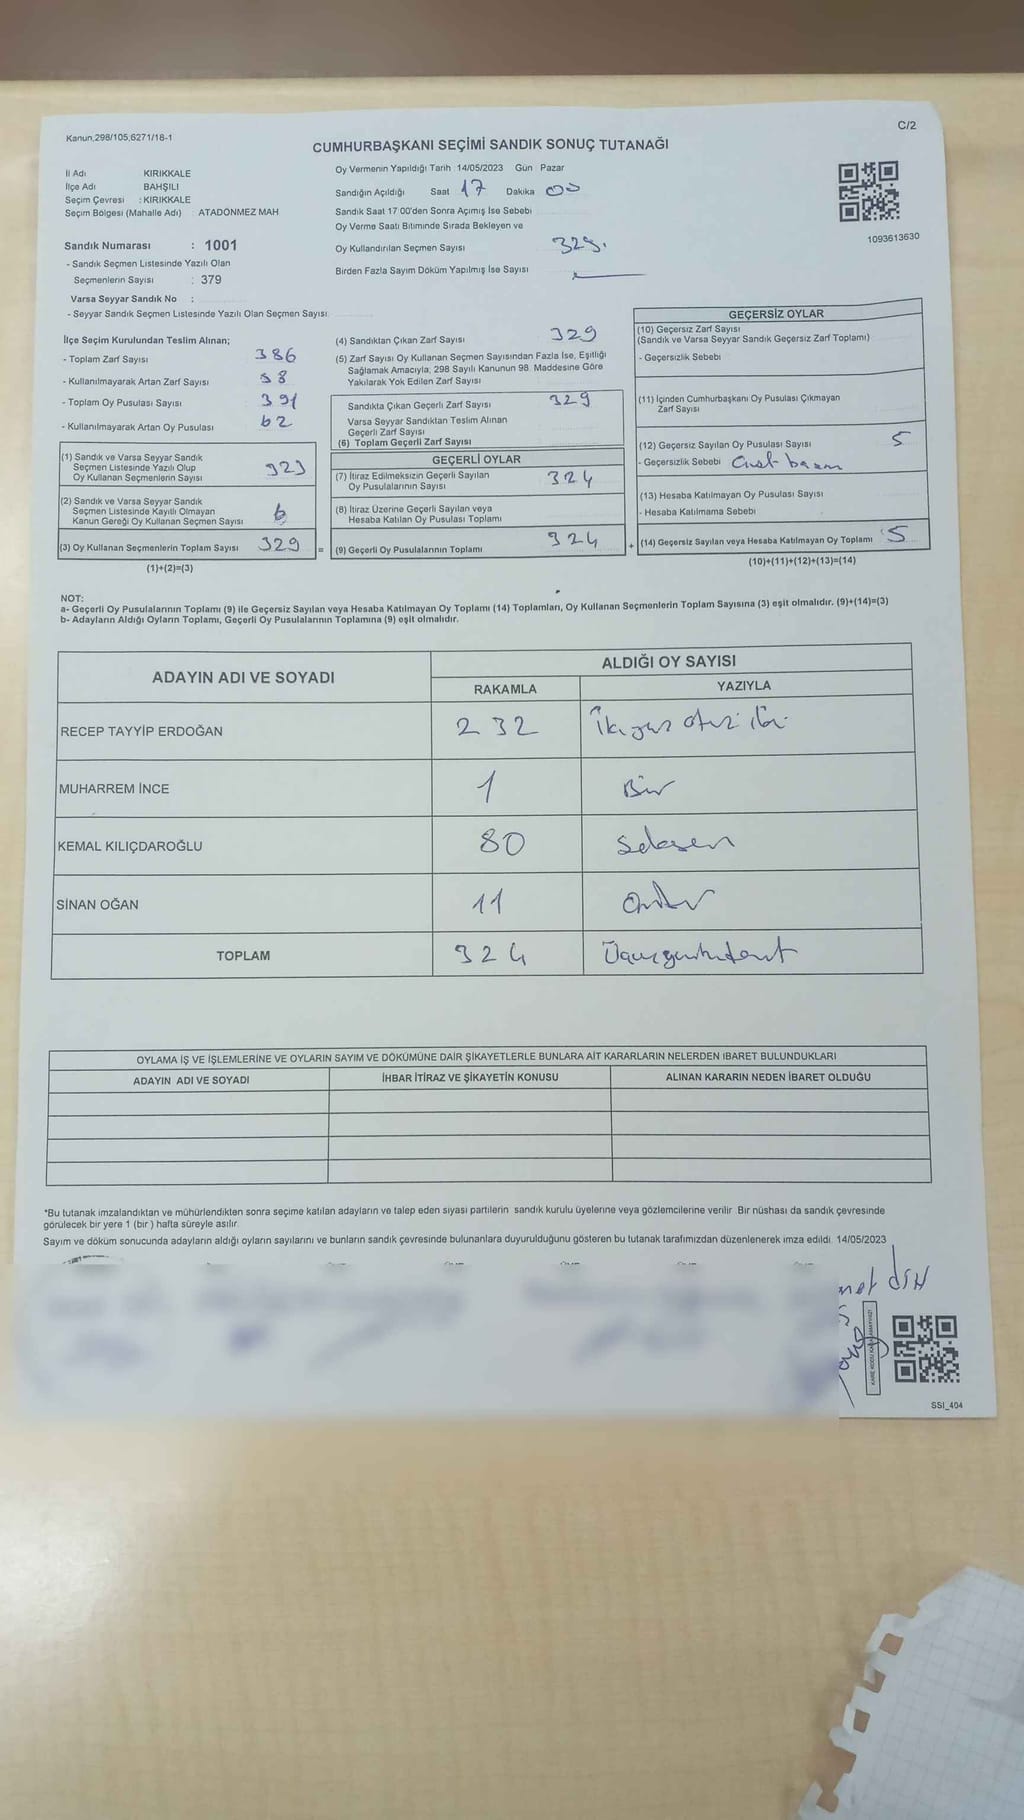 Kanun,298/105,6271/18-1
C/2
CUMHURBAŞKANI SEÇİMİ SANDIK SONUÇ TUTANAĞI
İl Adı KIRIKKALE
İlçe Adı BAHŞILI
Seçim Çevresi : KIRIKKALE
Seçim Bölgesi (Mahalle Adı) : ATADÖNMEZ MAH
Sandık Numarası : 1001
- Sandık Seçmen Listesinde Yazılı Olan
Seçmenlerin Sayısı : 379
Varsa Seyyar Sandık No :
- Seyyar Sandık Seçmen Listesinde Yazılı Olan Seçmen Sayısı:
Oy Vermenin Yapıldığı Tarih 14/05/2023 Gün Pazar
Sandığın Açıldığı Saat 17 Dakika 00
Sandık Saat 17 00'den Sonra Açımış İse Sebebi
Oy Verme Saati Bitiminde Sırada Bekleyen ve
Oy Kullandırılan Seçmen Sayısı 329.
Birden Fazla Sayım Döküm Yapılmış İse Sayısı
1093613630
İlçe Seçim Kurulundan Teslim Alınan;
- Toplam Zarf Sayısı 386
- Kullanılmayarak Artan Zarf Sayısı 58
- Toplam Oy Pusulası Sayısı 391
- Kullanılmayarak Artan Oy Pusulası 62
(1) Sandık ve Varsa Seyyar Sandık
Seçmen Listesinde Yazılı Olup
Oy Kullanan Seçmenlerin Sayısı 323
(2) Sandık ve Varsa Seyyar Sandık
Seçmen Listesinde Kayıllı Olmayan
Kanun Gereği Oy Kullanan Seçmen Sayısı 6
(3) Oy Kullanan Seçmenlerin Toplam Sayısı 329 =
(1)+(2)=(3)
(4) Sandıktan Çıkan Zarf Sayısı 329
(5) Zarf Sayısı Oy Kullanan Seçmen Sayısından Fazla İse, Eşitliği
Sağlamak Amacıyla, 298 Sayılı Kanunun 98. Maddesine Göre
Yakılarak Yok Edilen Zarf Sayısı
Sandıkta Çıkan Geçerli Zarf Sayısı 329
Varsa Seyyar Sandıktan Teslim Alınan
Geçerli Zarf Sayısı
(6) Toplam Geçerli Zarf Sayısı
GEÇERLİ OYLAR
(7) İtiraz Edilmeksizin Geçerli Sayılan
Oy Pusulalarının Sayısı 324
(8) İtiraz Üzerine Geçerli Sayılan veya
Hesaba Katılan Oy Pusulası Toplamı
(9) Geçerli Oy Pusulalarının Toplamı 324 +
GEÇERSİZ OYLAR
(10) Geçersiz Zarf Sayısı
(Sandık ve Varsa Seyyar Sandık Geçersiz Zarf Toplamı)
- Geçersizlik Sebebi
(11) İçinden Cumhurbaşkanı Oy Pusulası Çıkmayan
Zarf Sayısı
(12) Geçersiz Sayılan Oy Pusulası Sayısı 5
- Geçersizlik Sebebi
(13) Hesaba Katılmayan Oy Pusulası Sayısı
- Hesaba Katılmama Sebebi
(14) Geçersiz Sayılan veya Hesaba Katılmayan Oy Toplamı 5
(10)+(11)+(12)+(13)=(14)
NOT:
a- Geçerli Oy Pusulalarının Toplamı (9) ile Geçersiz Sayılan veya Hesaba Katılmayan Oy Toplamı (14) Toplamları, Oy Kullanan Seçmenlerin Toplam Sayısına (3) eşit olmalıdır. (9)+(14)=(3)
b- Adayların Aldığı Oyların Toplamı, Geçerli Oy Pusulalarının Toplamına (9) eşit olmalıdır.
ADAYIN ADI VE SOYADI ALDIĞI OY SAYISI
RAKAMLA YAZIYLA
RECEP TAYYİP ERDOĞAN 232 İkiyüz otuz iki
MUHARREM İNCE 1 Bir
KEMAL KILIÇDAROĞLU 80 Seksen
SİNAN OĞAN 11 Onbir
TOPLAM 324 Üçyüzyirmidört
OYLAMA İŞ VE İŞLEMLERİNE VE OYLARIN SAYIM VE DÖKÜMÜNE DAİR ŞİKAYETLERLE BUNLARA AİT KARARLARIN NELERDEN İBARET BULUNDUKLARI
ADAYIN ADI VE SOYADI İHBAR İTİRAZ VE ŞİKAYETİN KONUSU ALINAN KARARIN NEDEN İBARET OLDUĞU
*Bu tutanak imzalandıktan ve mühürlendikten sonra seçime katılan adayların ve talep eden siyasi partilerin sandık kurulu üyelerine veya gözlemcilerine verilir. Bir nüshası da sandık çevresinde
görülecek bir yere 1 (bir ) hafta süreyle asılır.
Sayım ve döküm sonucunda adayların aldığı oyların sayılarını ve bunların sandık çevresinde bulunanlara duyurulduğunu gösteren bu tutanak tarafımızdan düzenlenerek imza edildi. 14/05/2023
SSI_404